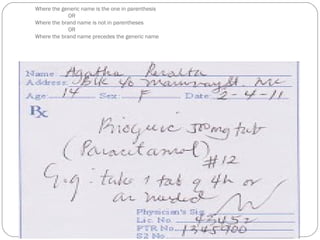 Where the generic name is the one in parenthesis
OR
Where the brand name is not in parentheses
OR
Where the brand name precedes the generic name
Name: Agatha Peralta
Address: Blk 40
Age: 14 Sex: F Date: 2-4-11
Rx
Biogesic 500mg tab
(Paracetamol) #12
Sig: take 1 tab q 4h or
as needed
Physician's Sig
Lic No. 43452
PTR No. 1345900
S2 No.